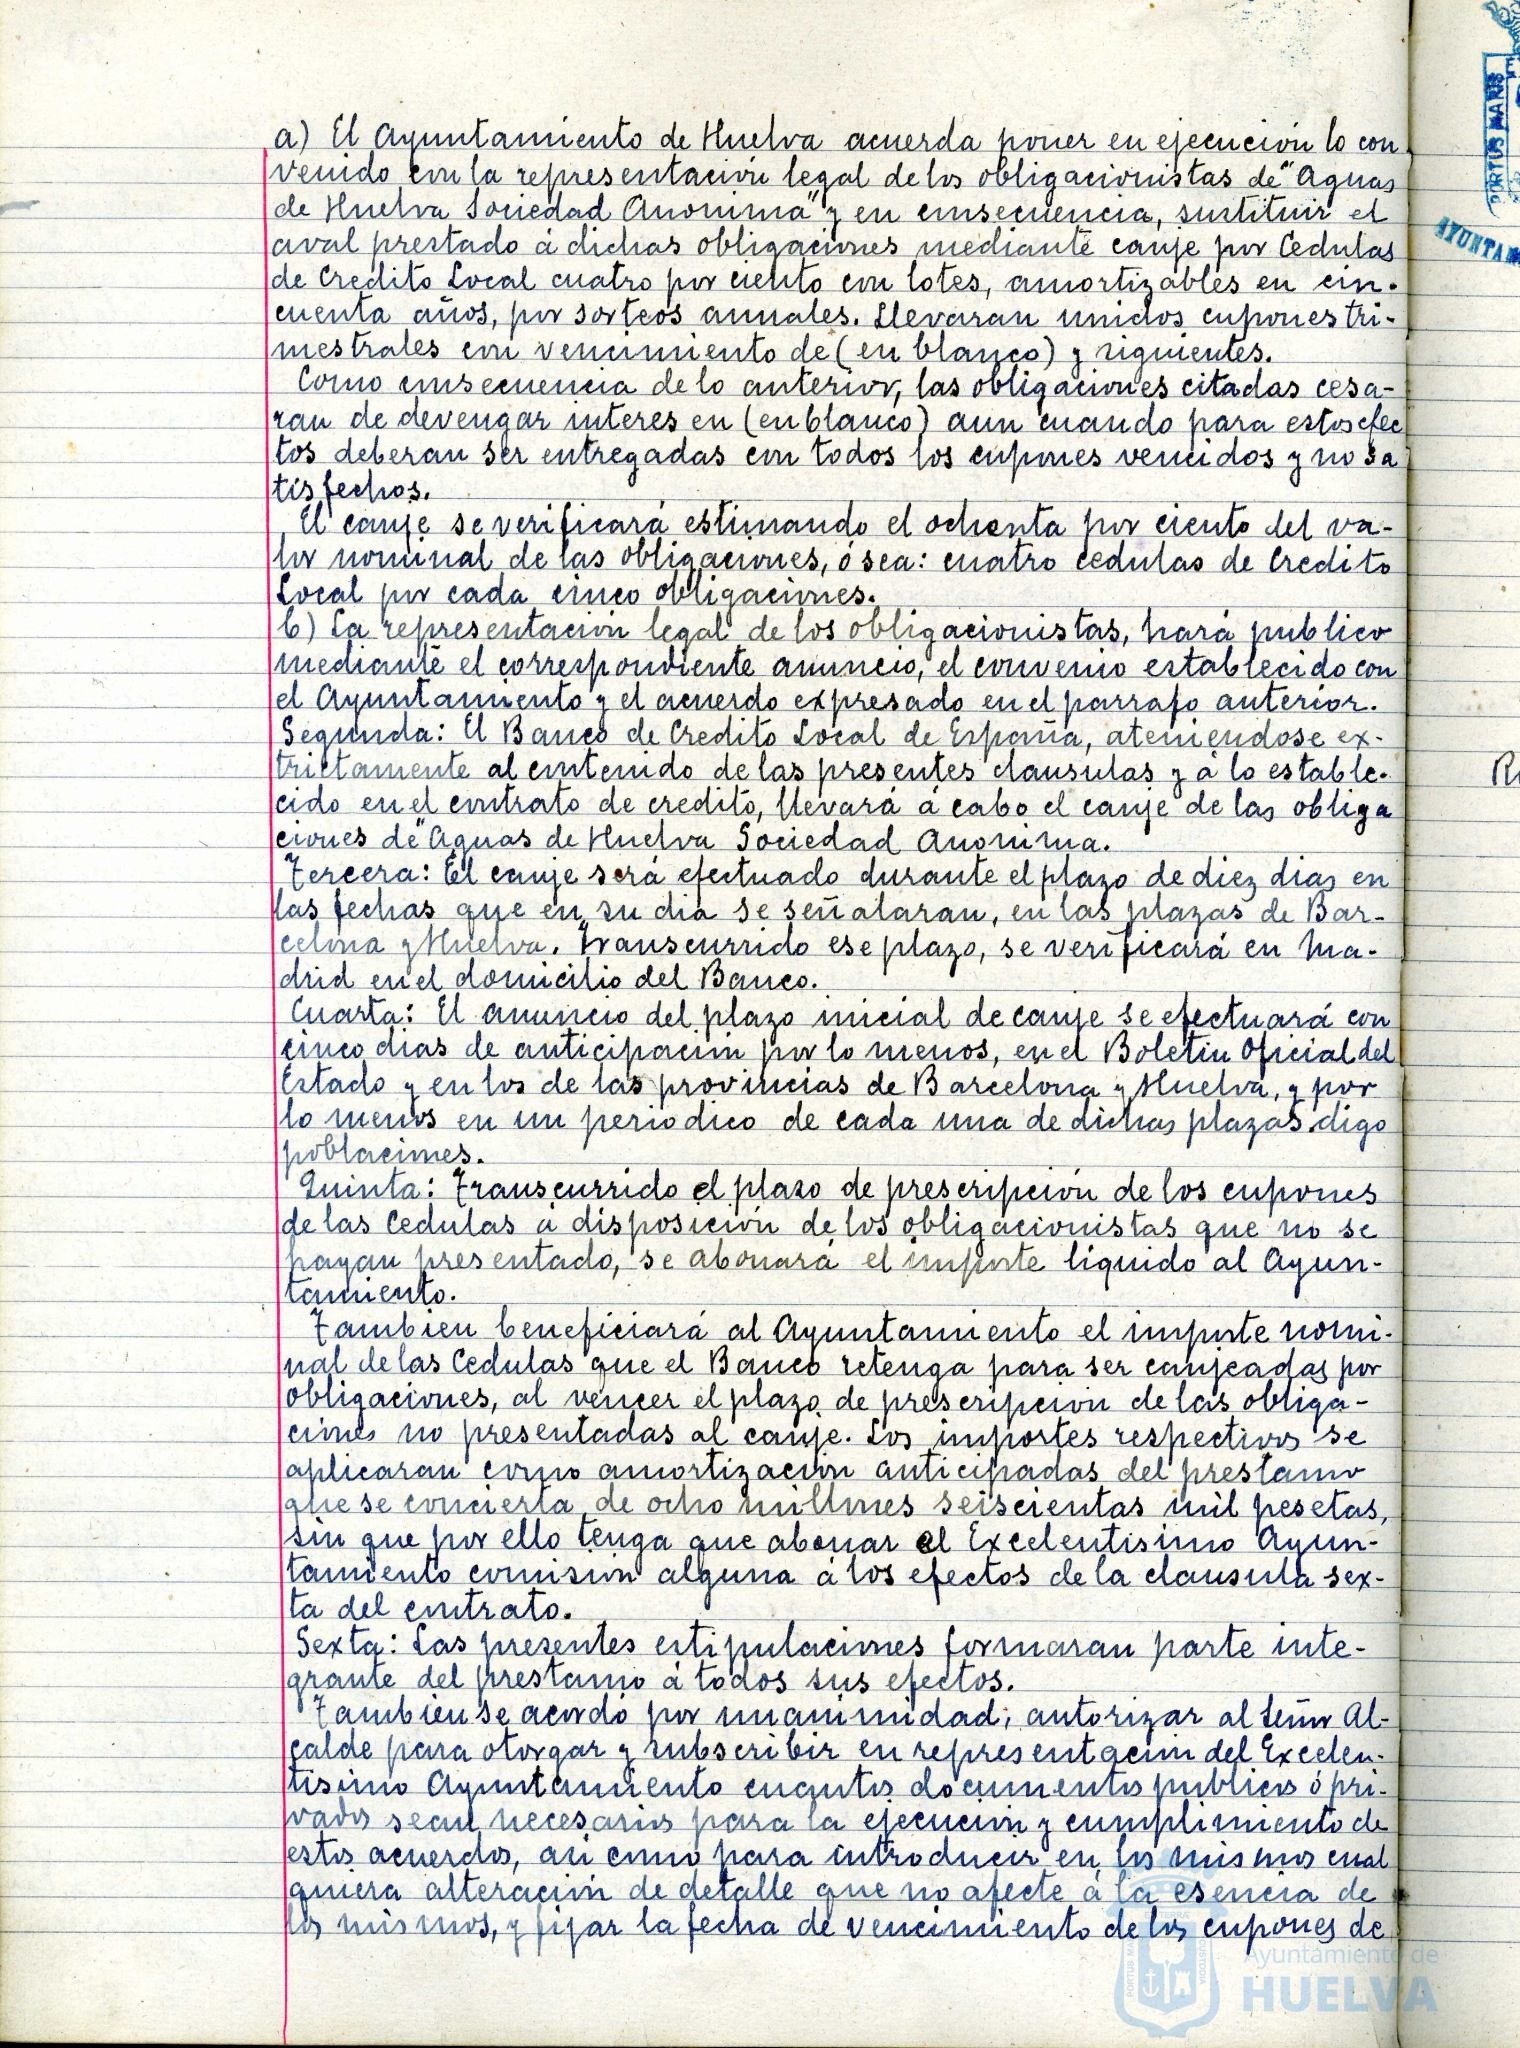 a) El Ayuntamiento de Huelva acuerda poner en ejecución lo con
venido con la representación legal de los obligacionistas de "Aguas
de Huelva Sociedad Anonima" y en consecuencia, sustituir el
aval prestado á dichas obligaciones mediante canje por Cedulas
de Credito Local cuatro por ciento con lotes, amortizables en cin-
cuenta años, por sorteos anuales. Llevaran unidos cupones tri-
mestrales con vencimiento de (en blanco) y siguientes.
Como consecuencia de lo anterior, las obligaciones citadas cesa-
ran de devengar interes en (en blanco) aun cuando para estos efec
tos deberan ser entregadas con todos los cupones vencidos y no sa
tisfechos.
El canje se verificará estimando el ochenta por ciento del va-
lor nominal de las obligaciones, ó sea: cuatro cedulas de Credito
Local por cada cinco obligaciones.
b) La representación legal de los obligacionistas, hará publico
mediante el correspondiente anuncio, el convenio establecido con
el Ayuntamiento y el acuerdo expresado en el parrafo anterior.
Segunda: El Banco de Credito Local de España, ateniendose ex-
trictamente al contenido de las presentes clausulas y á lo estable-
cido en el contrato de credito, llevará á cabo el canje de las obliga
ciones de "Aguas de Huelva Sociedad Anonima.
Tercera: El canje será efectuado durante el plazo de diez dias en
las fechas que en su dia se señalaran, en las plazas de Bar-
celona y Huelva. Transcurrido ese plazo, se verificará en Ma-
drid en el domicilio del Banco.
Cuarta: El anuncio del plazo inicial de canje se efectuará con
cinco dias de anticipación por lo menos, en el Boletin Oficial del
Estado y en los de las provincias de Barcelona y Huelva, y por
lo menos en un periodico de cada una de dichas plazas digo
poblaciones.
Quinta: Transcurrido el plaso de prescripción de los cupones
de las Cedulas á disposición de los obligacionistas que no se
hayan presentado, se abonará el importe liquido al Ayun-
tamiento.
Tambien beneficiará al Ayuntamiento el importe nomi-
nal de las Cedulas que el Banco retenga para ser canjeadas por
obligaciones, al vencer el plazo de prescripción de las obliga-
ciones no presentadas al canje. Los importes respectivos se
aplicaran como amortización anticipadas del prestamo
que se concierta de ocho millones seiscientas mil pesetas,
sin que por ello tenga que abonar el Excelentisimo Ayun-
tamiento comisión alguna á los efectos de la clausula sex-
ta del contrato.
Sexta: Las presentes estipulaciones formaran parte inte-
grante del prestamo á todos sus efectos.
Tambien se acordó por unanimidad, autorizar al señor Al-
calde para otorgar y subscribir en representación del Excelen-
tisimo Ayuntamiento cuantos documentos publicos ó pri-
vados sean necesarios para la ejecución y cumplimiento de
estos acuerdos, asi como para introducir en los mismos cual
quiera alteración de detalle que no afecte á la esencia de
los mismos, y fijar la fecha de vencimiento de los cupones de
Ayuntamiento de
HUELVA
PORTUS MARIS